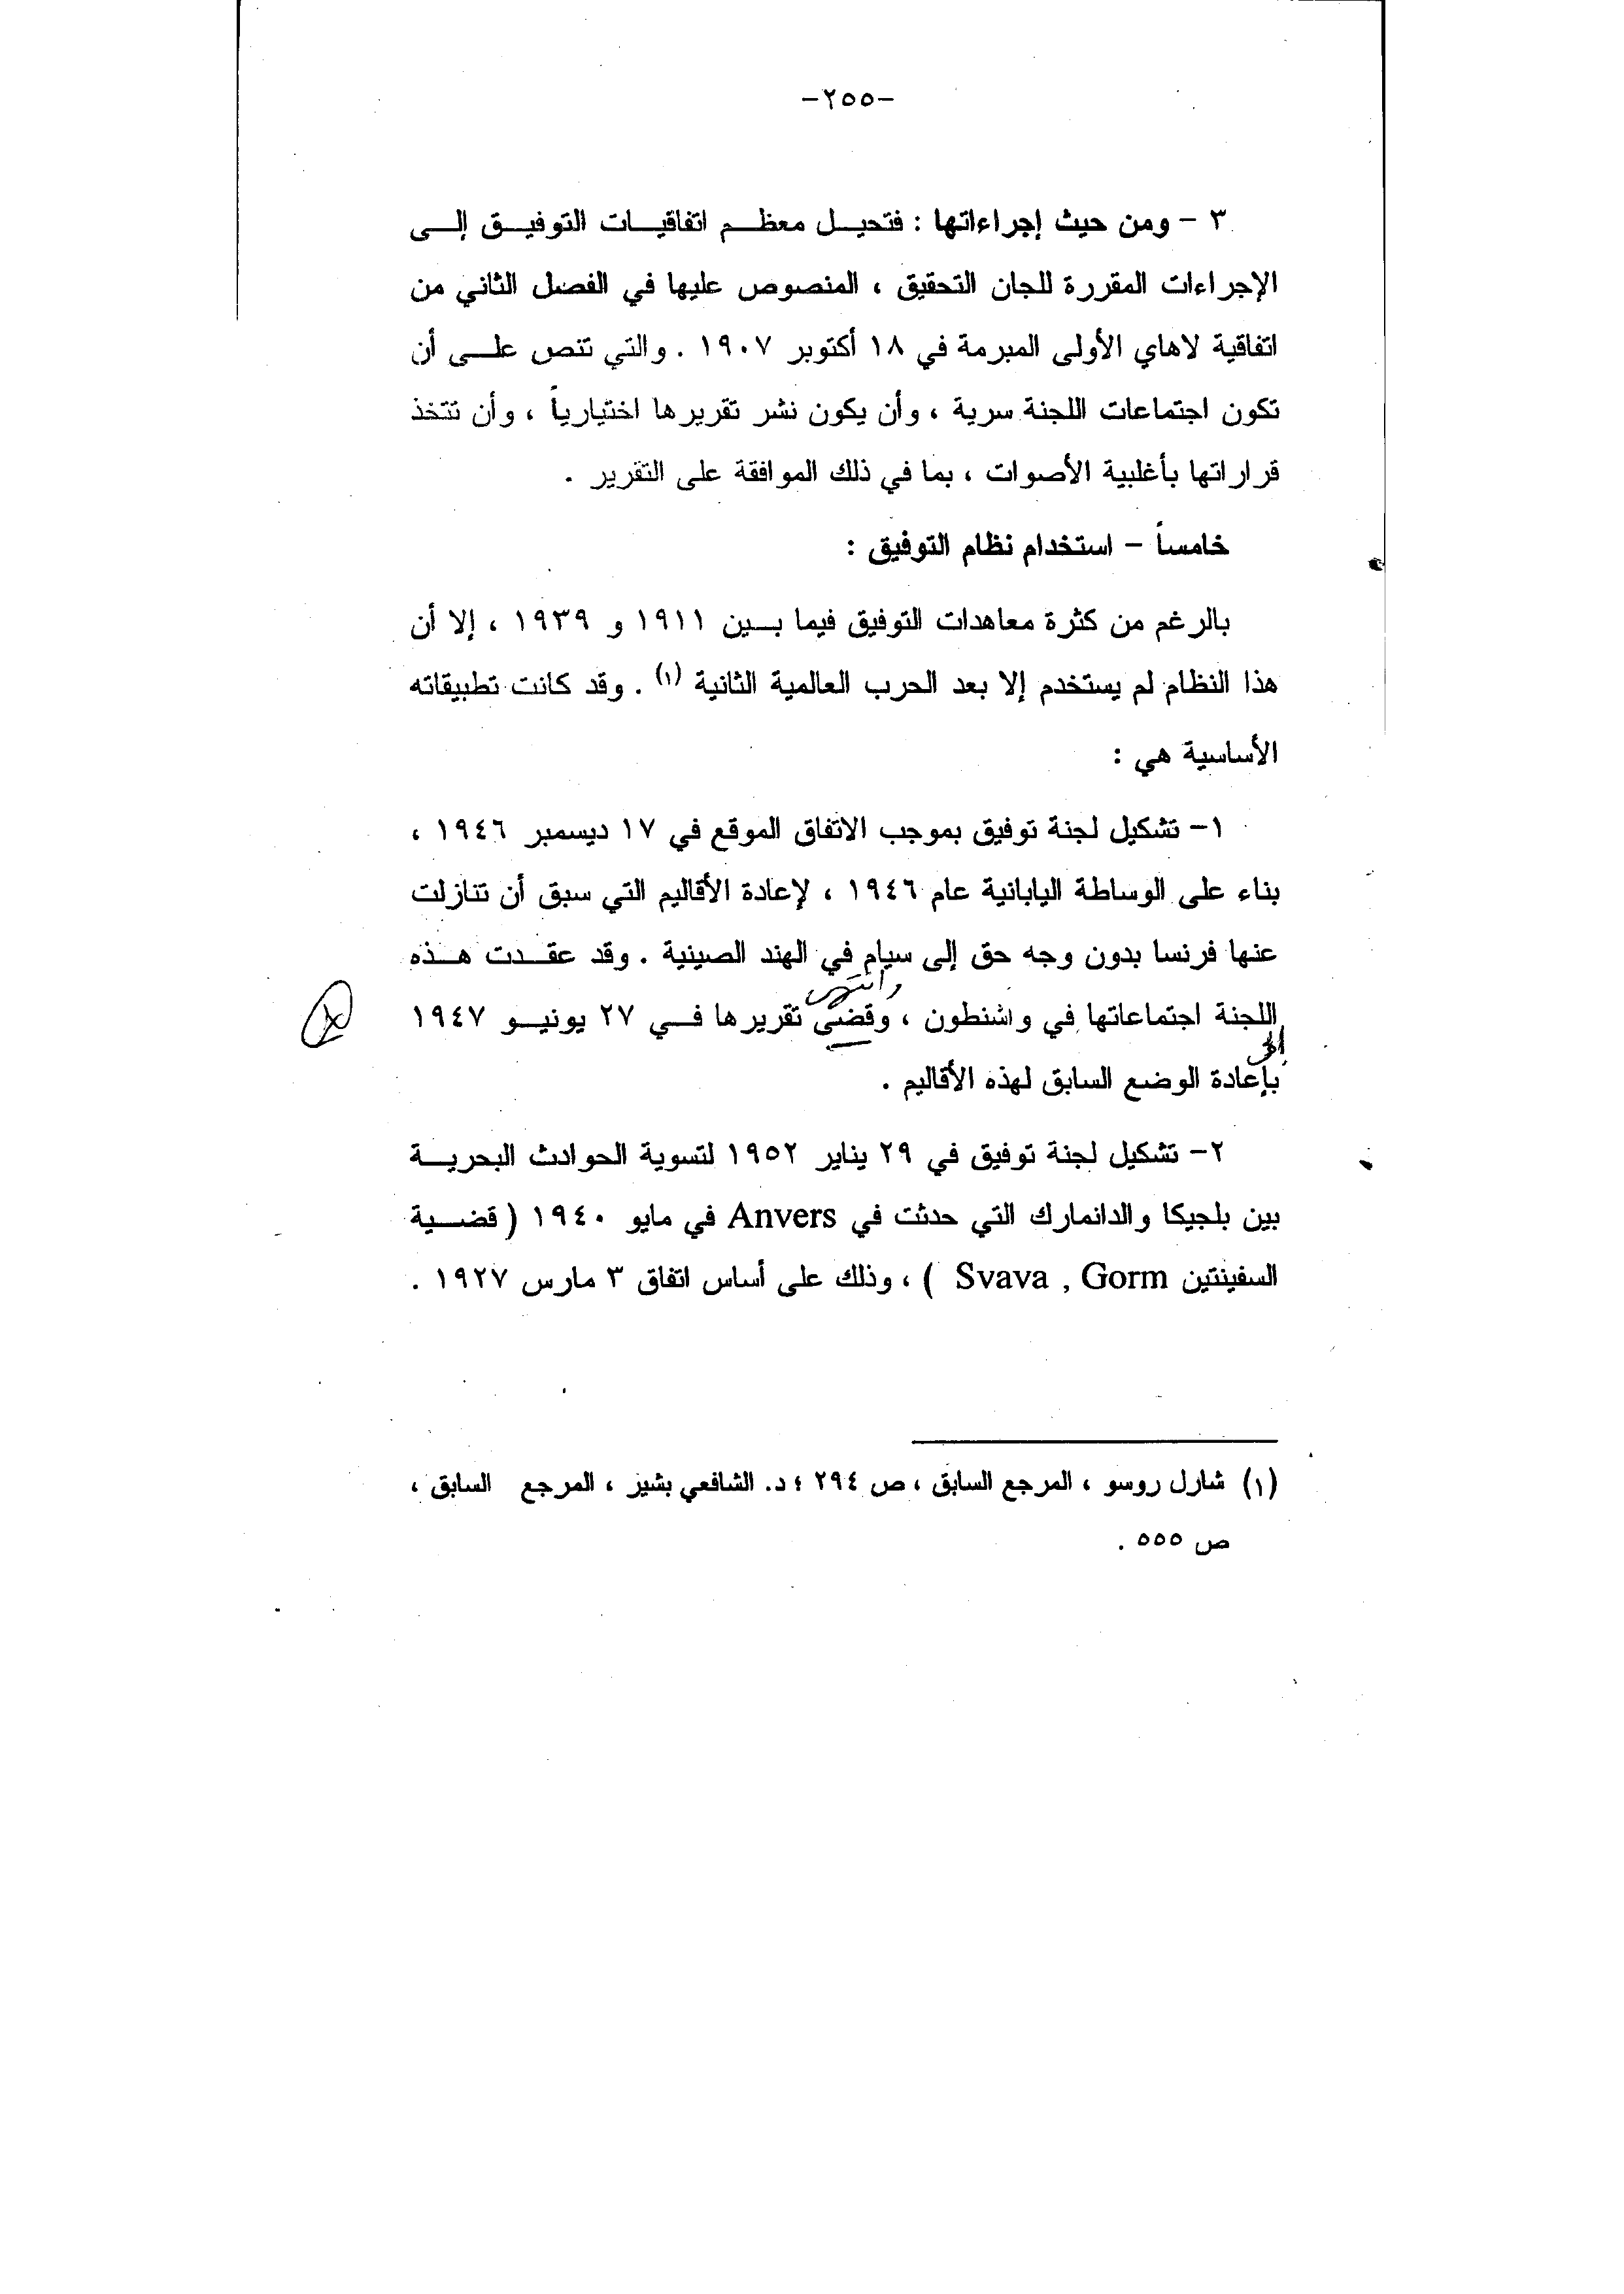 -٢٥٥-
٣ - ومن حيث إجراءاتها : فتحيل معظم اتفاقيات التوفيق إلى
الإجراءات المقررة للجان التحقيق ، المنصوص عليها في الفصل الثاني من
اتفاقية لاهاي الأولى المبرمة في ١٨ أكتوبر ١٩٠٧ . والتي تنص على أن
تكون اجتماعات اللجنة سرية ، وأن يكون نشر تقريرها اختيارياً ، وأن تتخذ
قراراتها بأغلبية الأصوات ، بما في ذلك الموافقة على التقرير .
خامساً - استخدام نظام التوفيق :
بالرغم من كثرة معاهدات التوفيق فيما بين ١٩١١ و ١٩٣٩ ، إلا أن
هذا النظام لم يستخدم إلا بعد الحرب العالمية الثانية (١) . وقد كانت تطبيقاته
الأساسية هي :
١- تشكيل لجنة توفيق بموجب الاتفاق الموقع في ١٧ ديسمبر ١٩٤٦ ،
بناء على الوساطة اليابانية عام ١٩٤٦ ، لإعادة الأقاليم التي سبق أن تنازلت
عنها فرنسا بدون وجه حق إلى سيام في الهند الصينية . وقد عقدت هذه
وانتهى
اللجنة اجتماعاتها في واشنطون ، وقضى تقريرها في ٢٧ يونيو ١٩٤٧
إلى
بإعادة الوضع السابق لهذه الأقاليم .
٢- تشكيل لجنة توفيق في ٢٩ يناير ١٩٥٢ لتسوية الحوادث البحرية
بين بلجيكا والدانمارك التي حدثت في Anvers في مايو ١٩٤٠ ( قضية
السفينتين Svava , Gorm ) ، وذلك على أساس اتفاق ٣ مارس ١٩٢٧ .
(١) شارل روسو ، المرجع السابق ، ص ٢٩٤ ؛ د. الشافعي بشير ، المرجع السابق ،
ص ٥٥٥ .